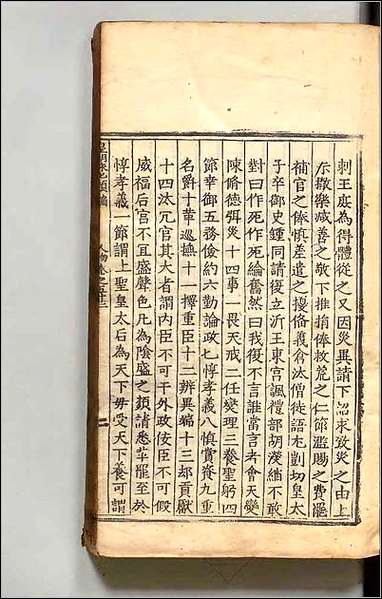 刺王庭為得體從之又因災異請下詔求致災之由上
布撤樂減膳之敬下推捐俸救荒之仁節濫賜之費罷
補官之俵慎差遣之擾脩義倉汰僧徒語尤剴切皇太
子卒御史鍾同請復立沂王東宮諷禮部胡濙緒不敢
對曰作死作死綸奮然曰我復不言誰當言者會天變
陳脩德弭災十四事一畏天戒二任燮理三養聖躬四
節幸御五務儉約六勤論政七惇孝義八慎賞賚九重
名爵十革巡撫十一擇重臣十二辨異端十三却貢獻
十四汰冗官其大者謂内臣不可干外政佞臣不可假
威福后宫不宜盛聲色凡為陰盛之類請悉罷至於
惇孝義一節謂上聖皇太后為天下母受天下養可謂
皇朝 類編
人物卷之五十三
二